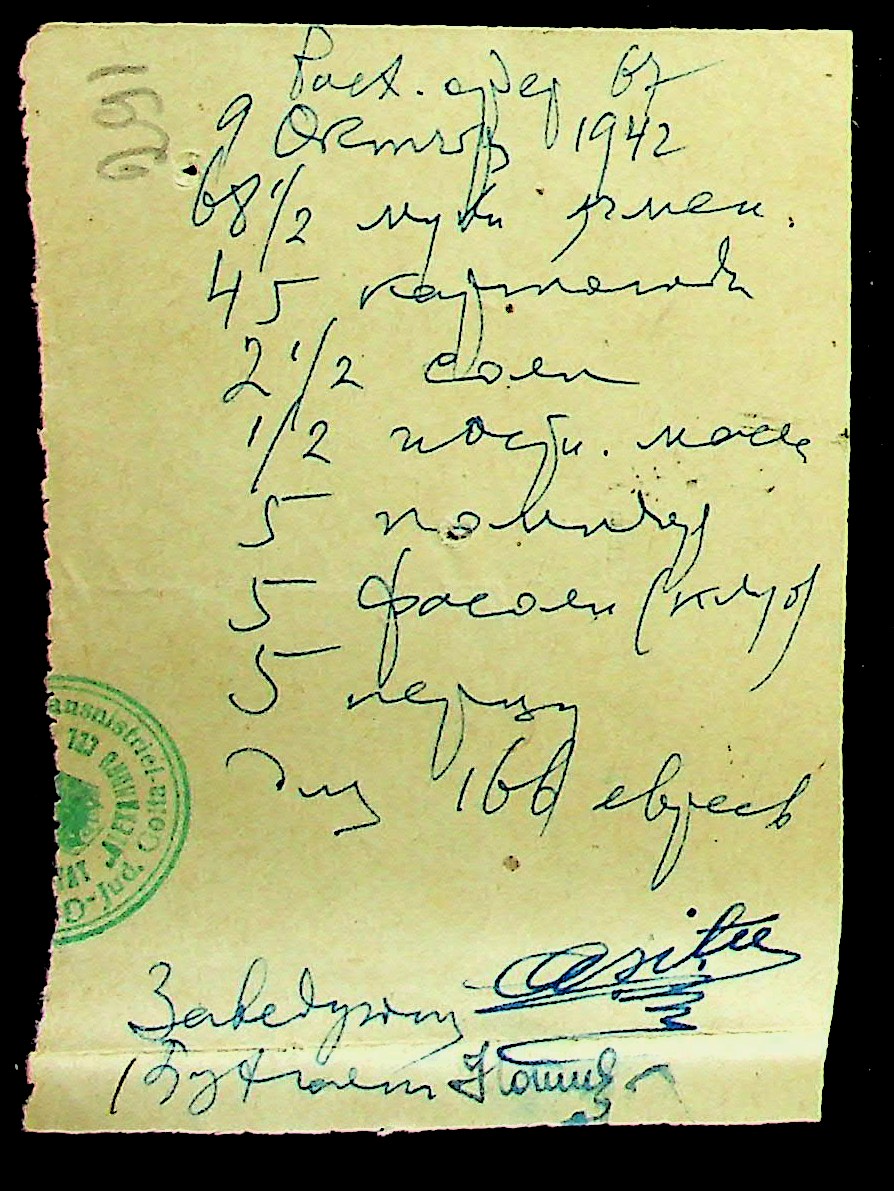 Расх. ордер 67
9 Октябр 1942
68 1/2 муки ячмен.
45 картошки
2 1/2 соли
1/2 пост. масла
5 помидор
5 фасоли (
5 перцу
для 166 евреев
Заведующ
Бухгалтер
ansnistriei
Jud. Golta